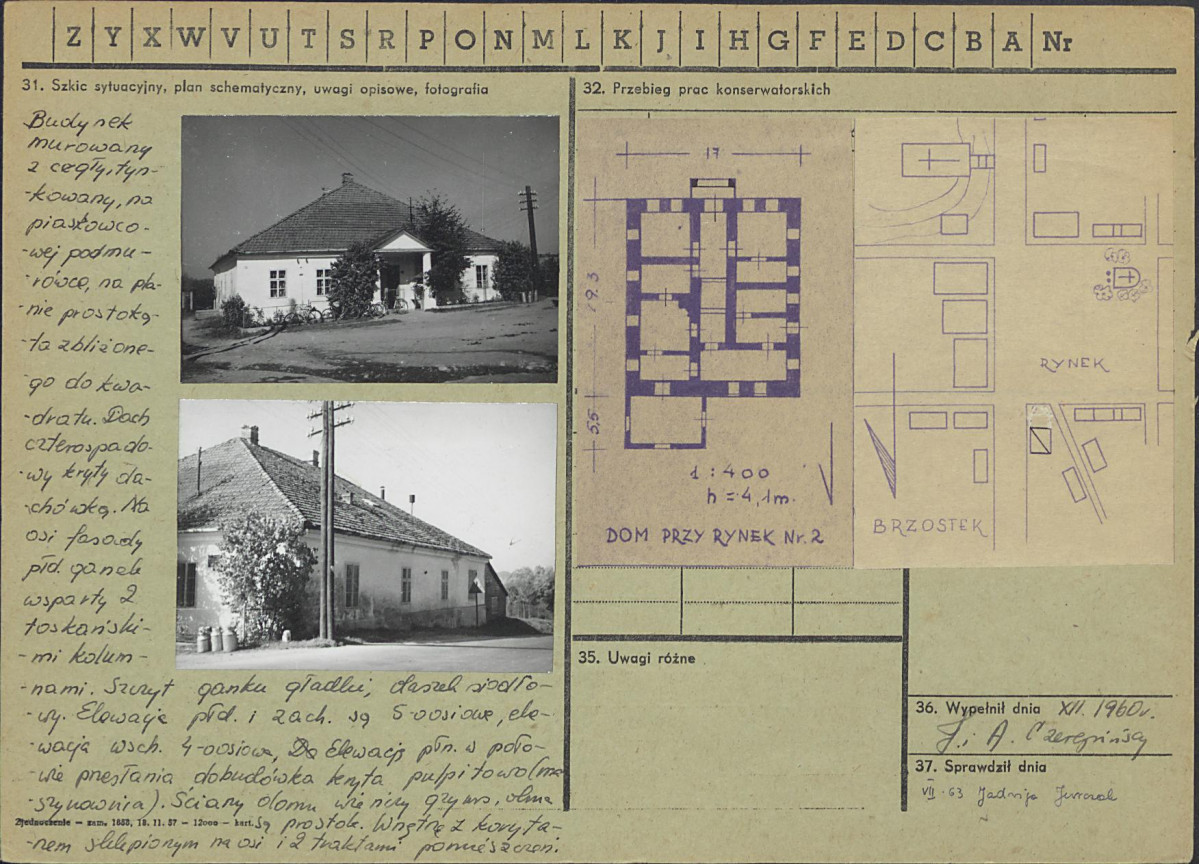 Z Y X W V U T S R P O N M L K J I H G F E D C B A Nr
31. Szkic sytuacyjny, plan schematyczny, uwagi opisowe, fotografia
Budynek
murowany
z cegły, tyn-
-kowany, na
piaskowco-
-wej podmu-
-rówce, na pła-
-nie prostoką-
-ta zbliżone-
-go do kwa-
-dratu. Dach
czterospado-
-wy kryty da-
-chówką. Na
osi fasady
płd. ganek
wsparty 2
toskański-
-mi kolum-
-nami. Szczyt ganku gładki, daszek siodło-
-wy. Elewacje płd. i zach. są 5-osiowe, ele-
-wacja wsch. 4-osiowa, Do elewacji płn. w poło-
-wie przesłania dobudówka kryta pulpitowo (ma
-szynownia). Ściany domu wieńczy gzyms, okna
Zjednoczenie — zam. 1653, 18. 11. 57 — 12000 — kart. są prostok. Wnętrze z koryta-
-rzem sklepionym na osi i 2 traktami pomieszczeń.
32. Przebieg prac konserwatorskich
17
19.3
5,5
1 : 400
h = 4,1m.
DOM PRZY RYNEK Nr. 2
RYNEK
BRZOSTEK
35. Uwagi różne
36. Wypełnił dnia XII. 1960r.
J. i A. Czerepińscy
37. Sprawdził dnia
VII. 63 Jadwiga